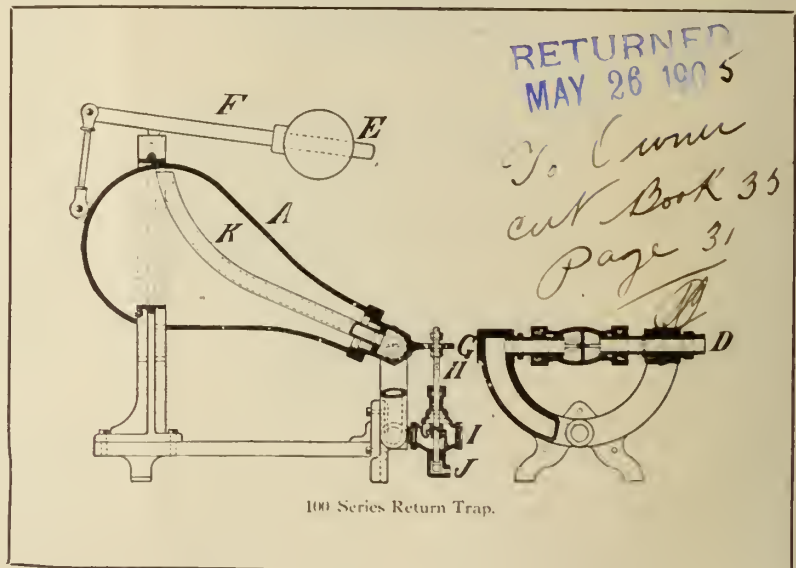 RETURNED
MAY 26 1905
Owner
cut Book 35
Page 31
F
E
A
K
G
D
H
I
J
100 Series Return Trap.